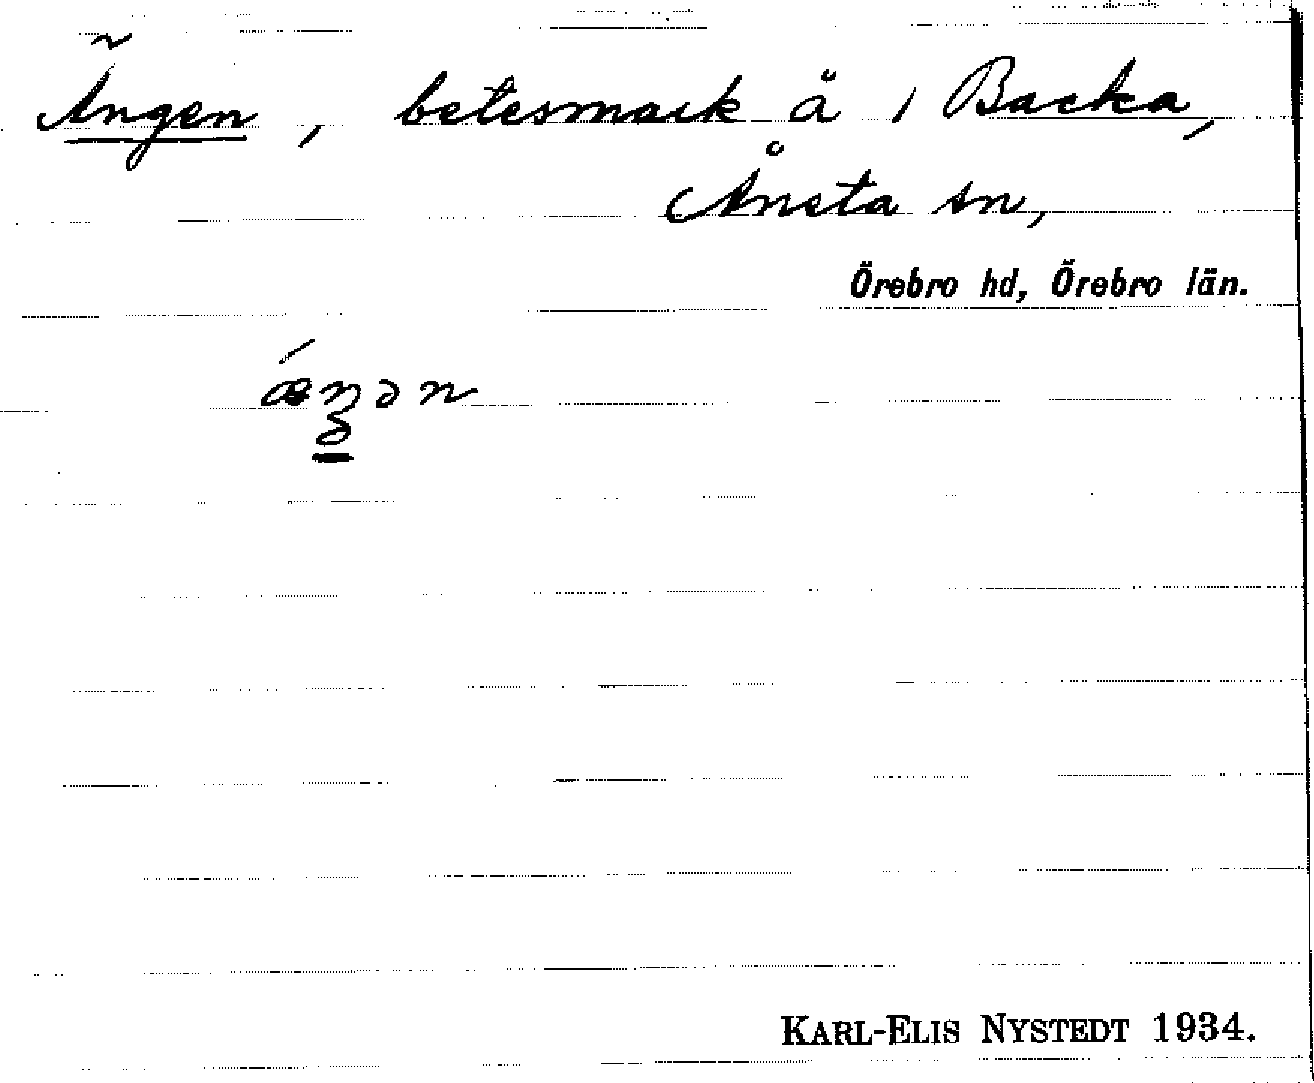 Ängen, betesmark å 1 Backa,
Ånsta sn,
Örebro hd, Örebro län.
ǽŋən
KARL-ELIS NYSTEDT 1934.